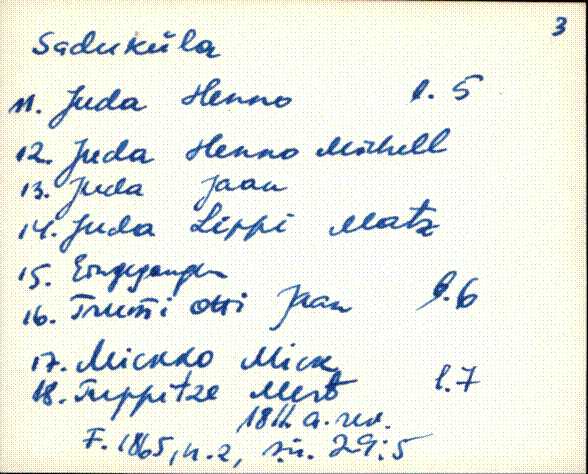 3
Saduküla
11. Juda Henno l. 5
12. Juda Henno Michell
13. Juda Jaan
14. Juda Lippi Matz
15. Eingegangen
16. Trummi Otti Jaan l. 6
17. Mickko Mick
18. Tuppitze Mert l. 7
1811. a. rev.
F. 1865, n. 2, sü. 29:5